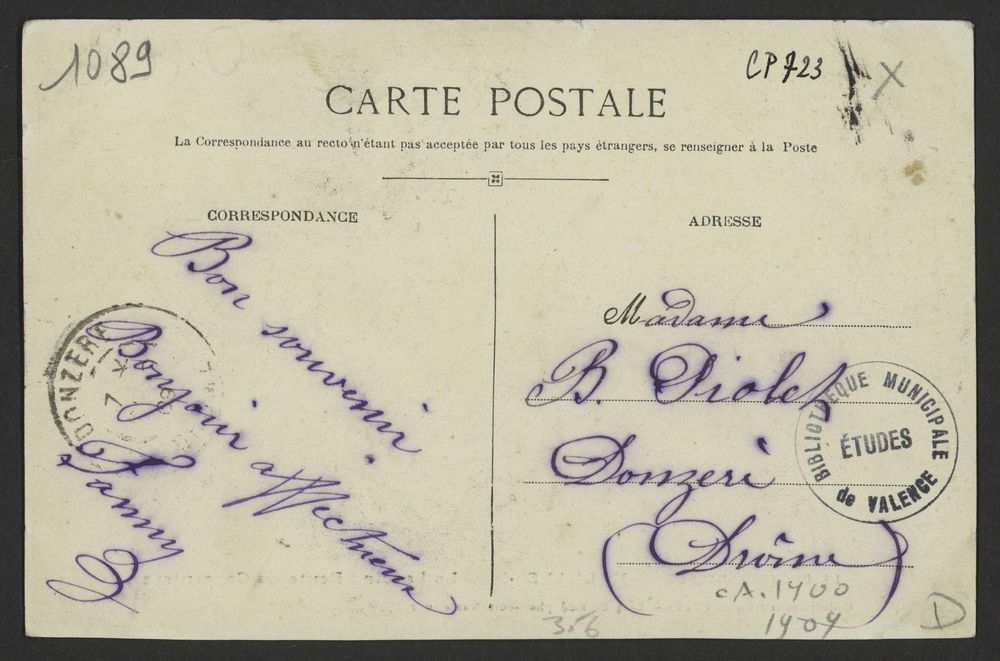 1089
CP 723
X
CARTE POSTALE
La Correspondance au recto n'étant pas acceptée par tous les pays étrangers, se renseigner à la Poste
CORRESPONDANCE
Bon souvenir
Bonjour affectueux
Fanny
DONZERE
7
ADRESSE
Madame
B. Piolet
Donzere
(Drôme)
BIBLIOTHEQUE MUNICIPALE
ÉTUDES
de VALENCE
CA. 1900
1904
356
D